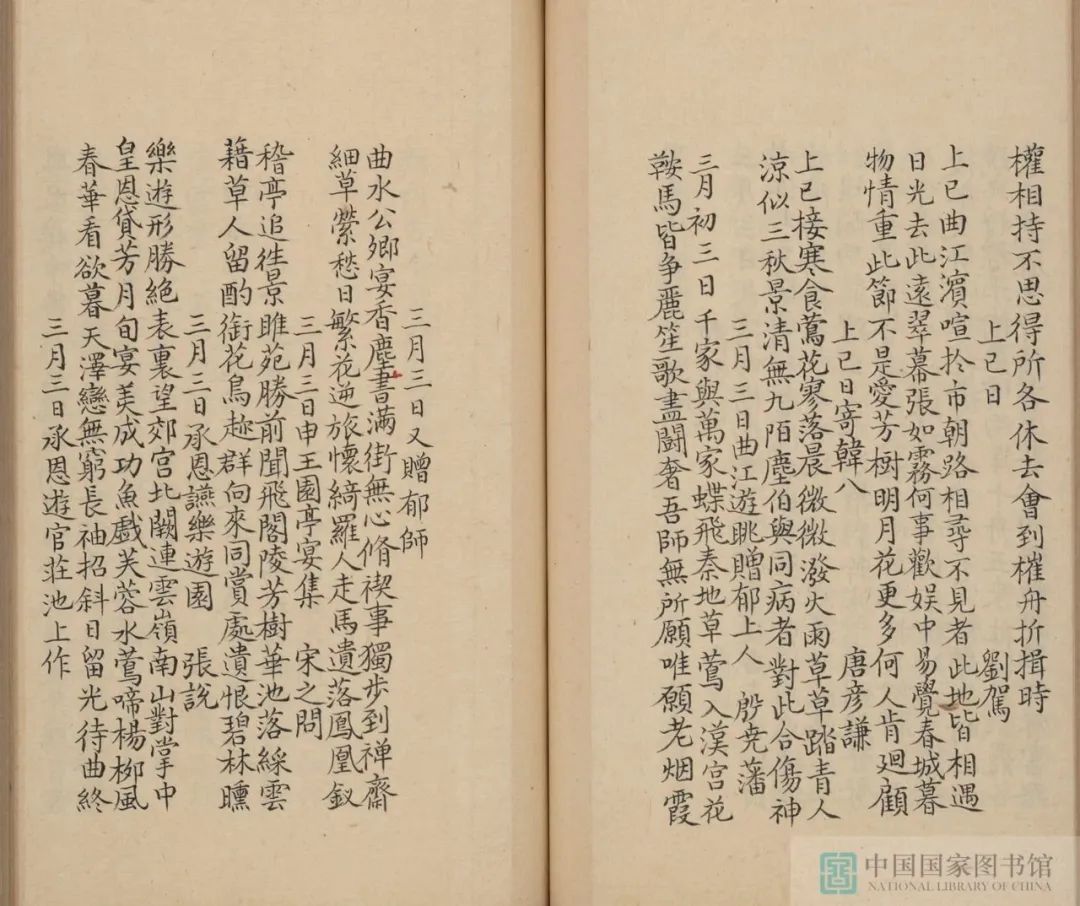 權相持不思得所各休去會到摧舟折揖時
上巳日　劉駕
上巳曲江濱喧扵市朝路相尋不見者此地皆相遇
日光去此遠翠幕張如霧何事歡娱中易覺春城暮
物情重此節不是愛芳樹明月花更多何人肯廻顧
上巳日寄韓八　唐彦謙
上巳接寒食鶯花寥落晨微微潑火雨草草踏青人
涼似三秋景清無九陌塵伯與同病者對此合傷神
三月三日曲江遊眺贈郁上人　殷尭藩
三月初三日千家與萬家蝶飛秦地草鶯入漢宫花
鞍馬皆争麗笙歌盡鬭奢吾師無所願唯願老烟霞
三月三日又贈郁師
曲水公卿宴香塵書滿街無心脩禊事獨步到禅齋
細草縈愁日繁花逆旅懷綺羅人走馬遺落鳳凰釵
三月三日申王園亭宴集　宋之問
稽亭追徃景睢苑勝前聞飛閣陵芳樹華池落綵雲
藉草人留酌銜花鳥趂群向來同賞處遺恨碧林曛
三月三日承恩讌樂遊園　張説
樂遊形勝絶表裏望郊宫北闕連雲嶺南山對掌中
皇恩貸芳月旬宴美成功魚戲芙蓉水鶯啼楊栁風
春華看欲暮天澤戀無窮長袖招斜日留光待曲終
三月三日承恩遊官莊池上作
中国国家图书馆
NATIONAL LIBRARY OF CHINA